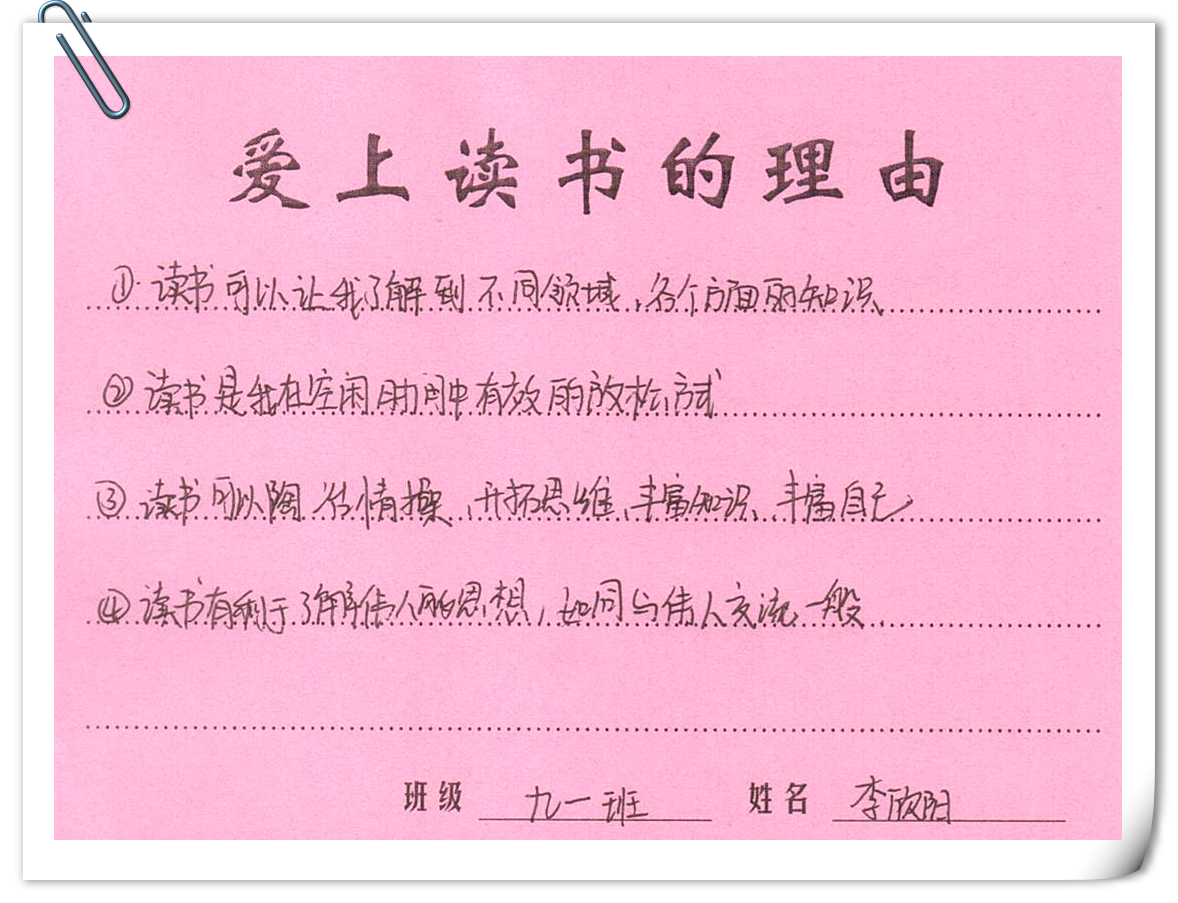 爱上读书的理由
①读书可以让我了解到不同领域,各个方面的知识
②读书是我在空闲时间中有效的放松方式
③读书可以陶冶情操、开拓思维、丰富知识、丰富自己
④读书有利于了解伟人的思想,如同与伟人交流一般
班级 九一班 姓名 李欣阳